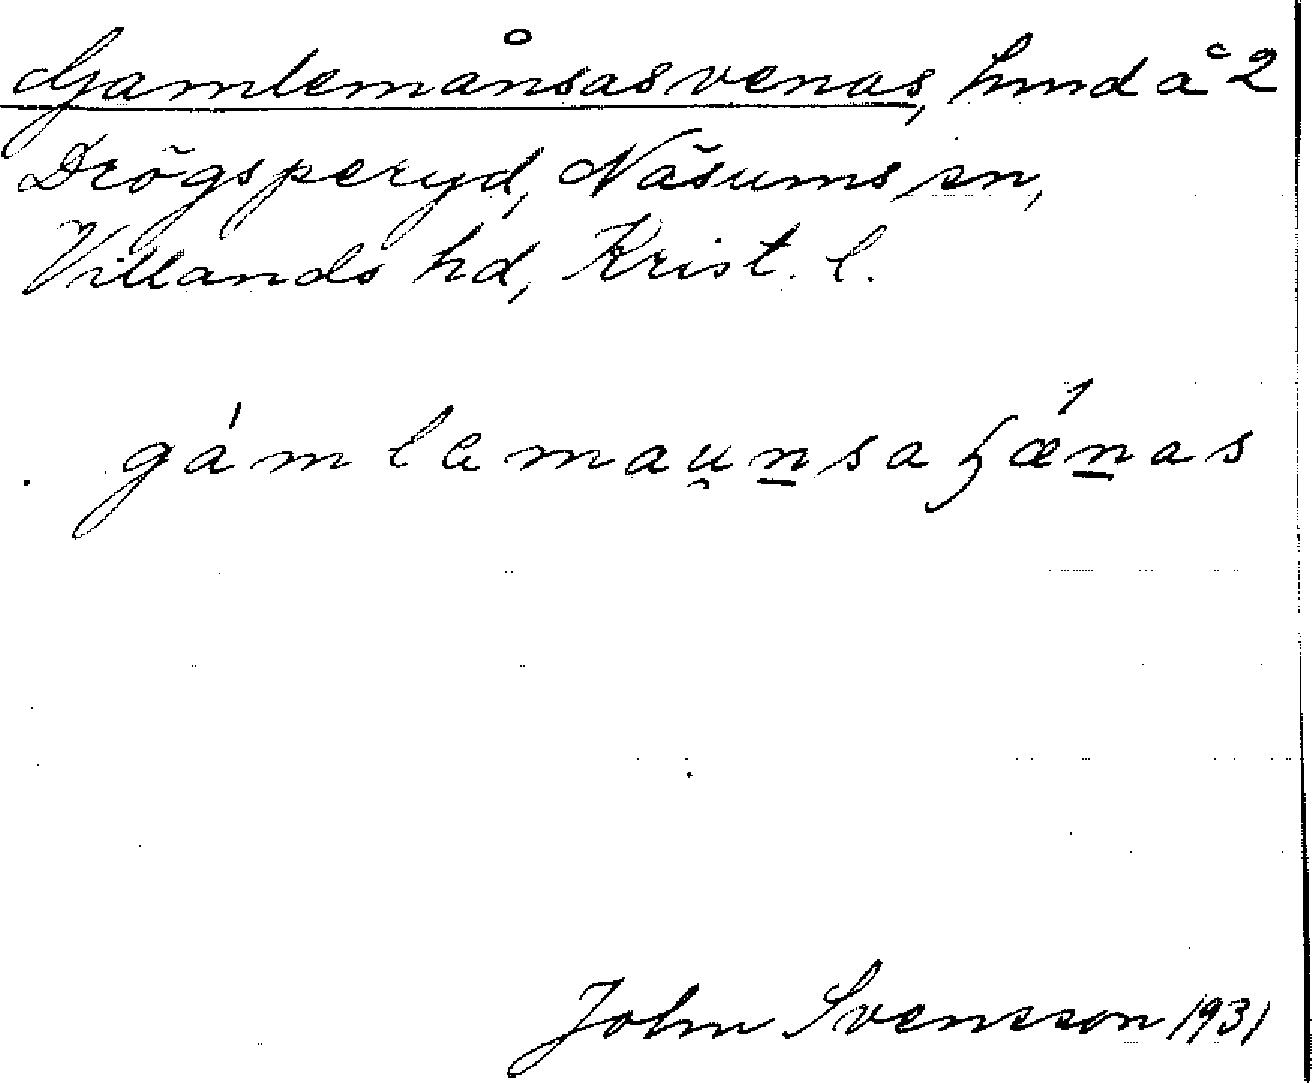 Gamlemånsasvenas, hmd å 2
Drögsperyd, Näsums sn,
Villands hd, Krist. l.
gámlemau̯n̲saɧǽn̲as
John Svensson 1931